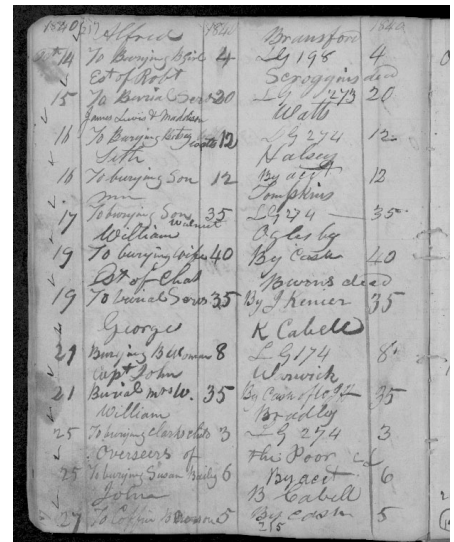 1840 217 1840 1840
Alfred Bransford
14 To Burying B girl 4 LG 198 4
Est of Robt Scroggins decd
15 To Burial Serv 20 LG 273 20
James Lewis & Maddison Watts
16 To Burying Betsey 12 LG 274 12
Seth Halsey
16 To burying Son 12 By acct 12
Tompkins
17 To burying Son Walnut 35 LG 274 35
William Oglesby
19 To burying wife 40 By Cash 40
Est of Chas Burns decd
19 To burial Servs 35 By J 35
George K Cabell
21 Burying B Woman 8 LG 174 8
Capt John Worwick
21 Burial Mrs W. 35 By Cash 35
William Bradley
25 To burying Clarks child 3 LG 274 3
Overseers of the Poor
25 To burying Susan Bailey 6 By acct 6
John B Cabell
27 To Coffin B 5 By Cash 5
215